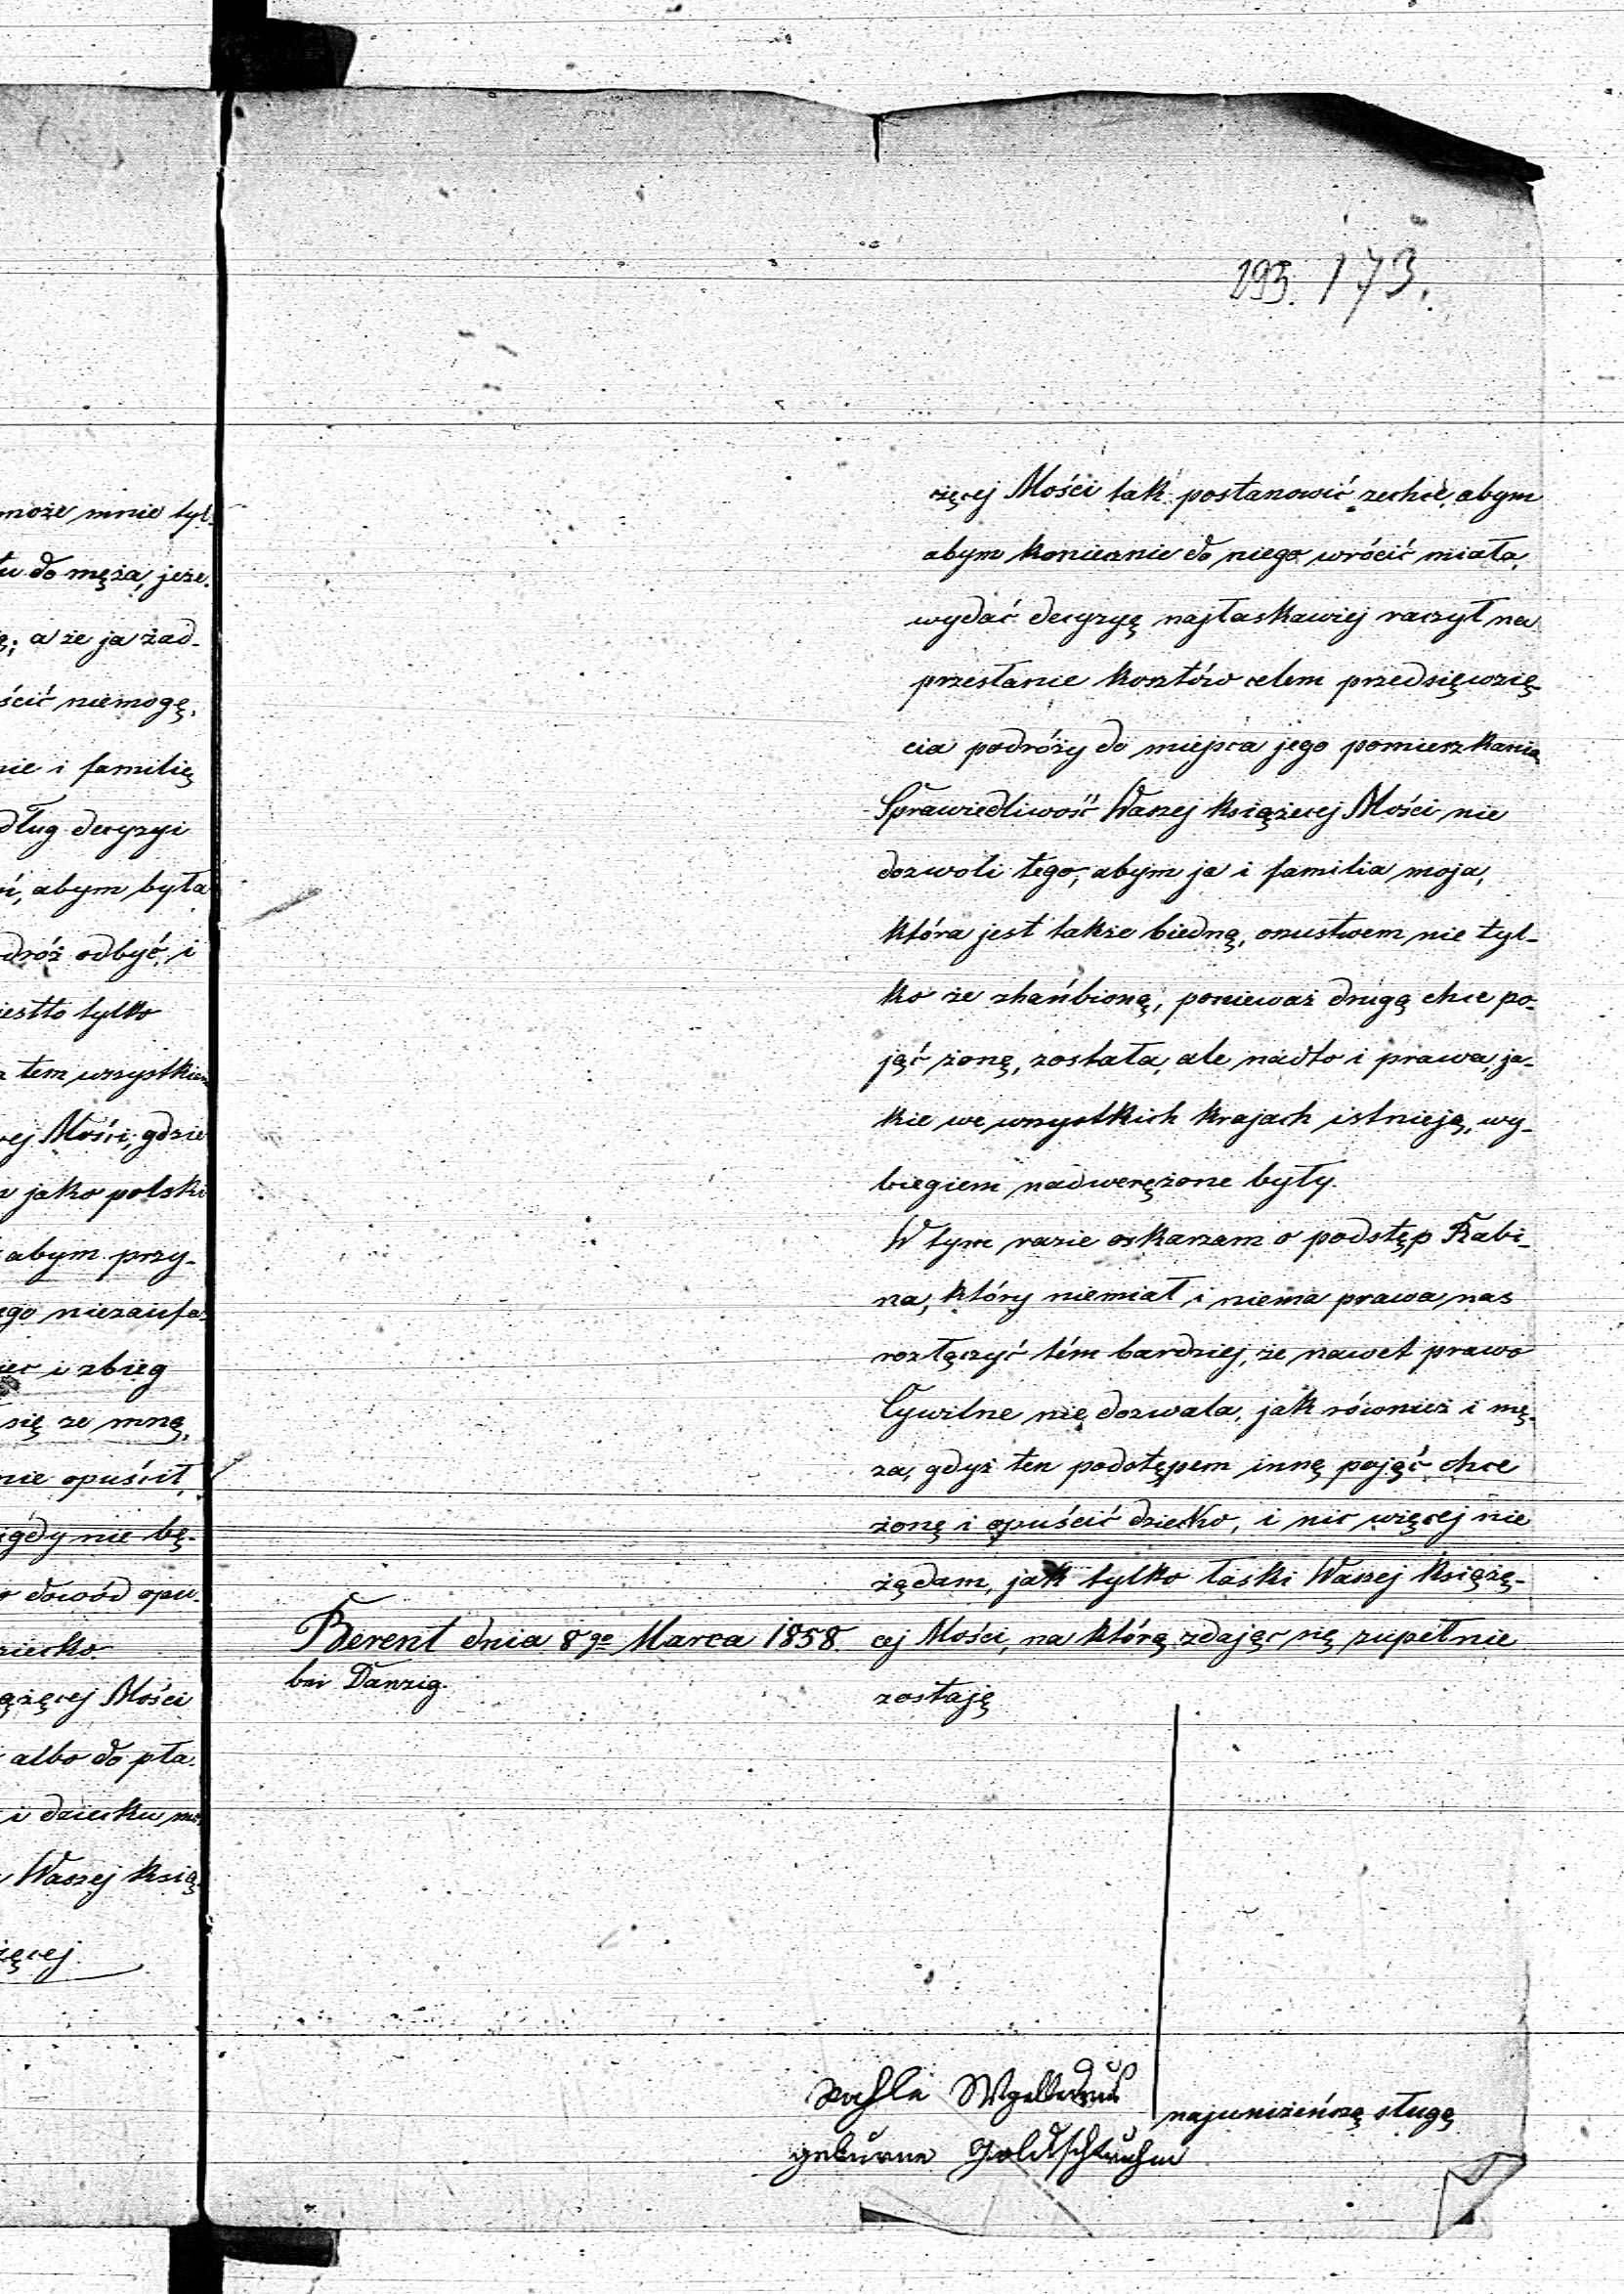 193. 173.
może mnie tyl-
tu do męża, jeże-
ę; a że ja żad-
ścić niemogę,
nie i familię
dług decyzyi
ń, abym była
dróż odbyć, i
jestto tylko
z tem wszystkiem
cej Mości, gdzie
jako polski
abym przy-
ego niezaufa-
iec i zbieg
się ze mną,
nie opuścił,
igdy nie bę-
o dowód opu-
ziecko.
ążęcej Mości
albo do pła-
i dziecku mo
Waszej Ksią-
żęcej
cięcej Mości tak postanowić zechce, abym
abym koniecznie do niego wrócić miała,
wydać decyzyę najłaskawiej raczył na
przesłanie kosztów celem przedsięwzię-
cia podróży do miejsca jego pomieszkania
Sprawiedliwość Waszej Książęcej Mości nie
dozwoli tego, abym ja i familia moja,
która jest także biedną, oszustwem nie tyl-
ko że zhańbioną, ponieważ drugą chce po-
jąć żonę, została, ale nadto i prawa, ja-
kie we wszystkich krajach istnieją, wy-
biegiem nadwerężone były.
W tym razie oskarzam o podstęp Rabi-
na, który niemiał i niema prawa nas
rozłączyć tém bardziej, że nawet prawo
Cywilne nie dozwala, jak również i mę-
ża, gdyż ten podstępem innę pojąć chce
żonę i opuścić dziecko, i nic więcej nie
żądam, jak tylko łaski Waszej Książę-
cej Mości, na którą zdając się zupełnie
zostaję
Berent dnia 8go Marca 1858.
bei Danzig.
najuniżeńszą sługą
geburne